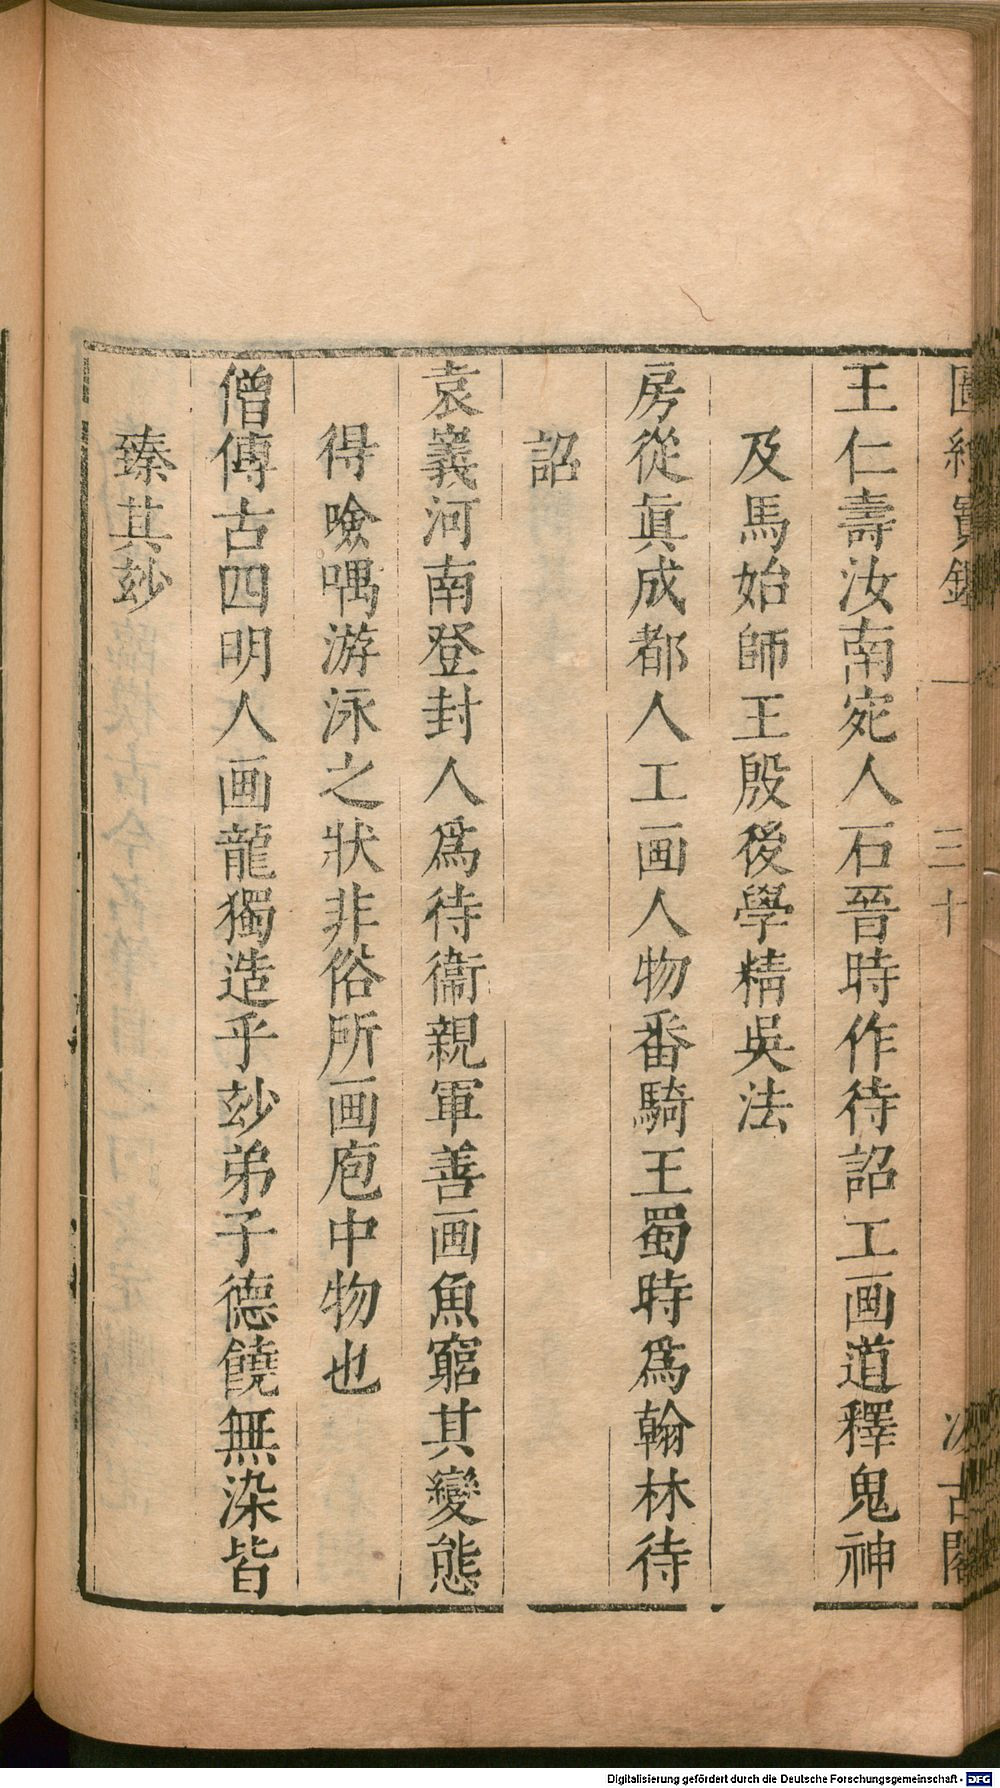 圖繪寶鑑 一 三十 汲古閣
王仁壽汝南宛人石晉時作待詔工画道釋鬼神
及馬始師王殷後學精吳法
房從眞成都人工画人物番騎王蜀時爲翰林待
詔
袁嶬河南登封人爲待衞親軍善画魚窮其變態
得噞喁游泳之狀非俗所画庖中物也
僧傳古四明人画龍獨造乎玅弟子德饒無染皆
臻其玅
Digitalisierung gefördert durch die Deutsche Forschungsgemeinschaft - DFG